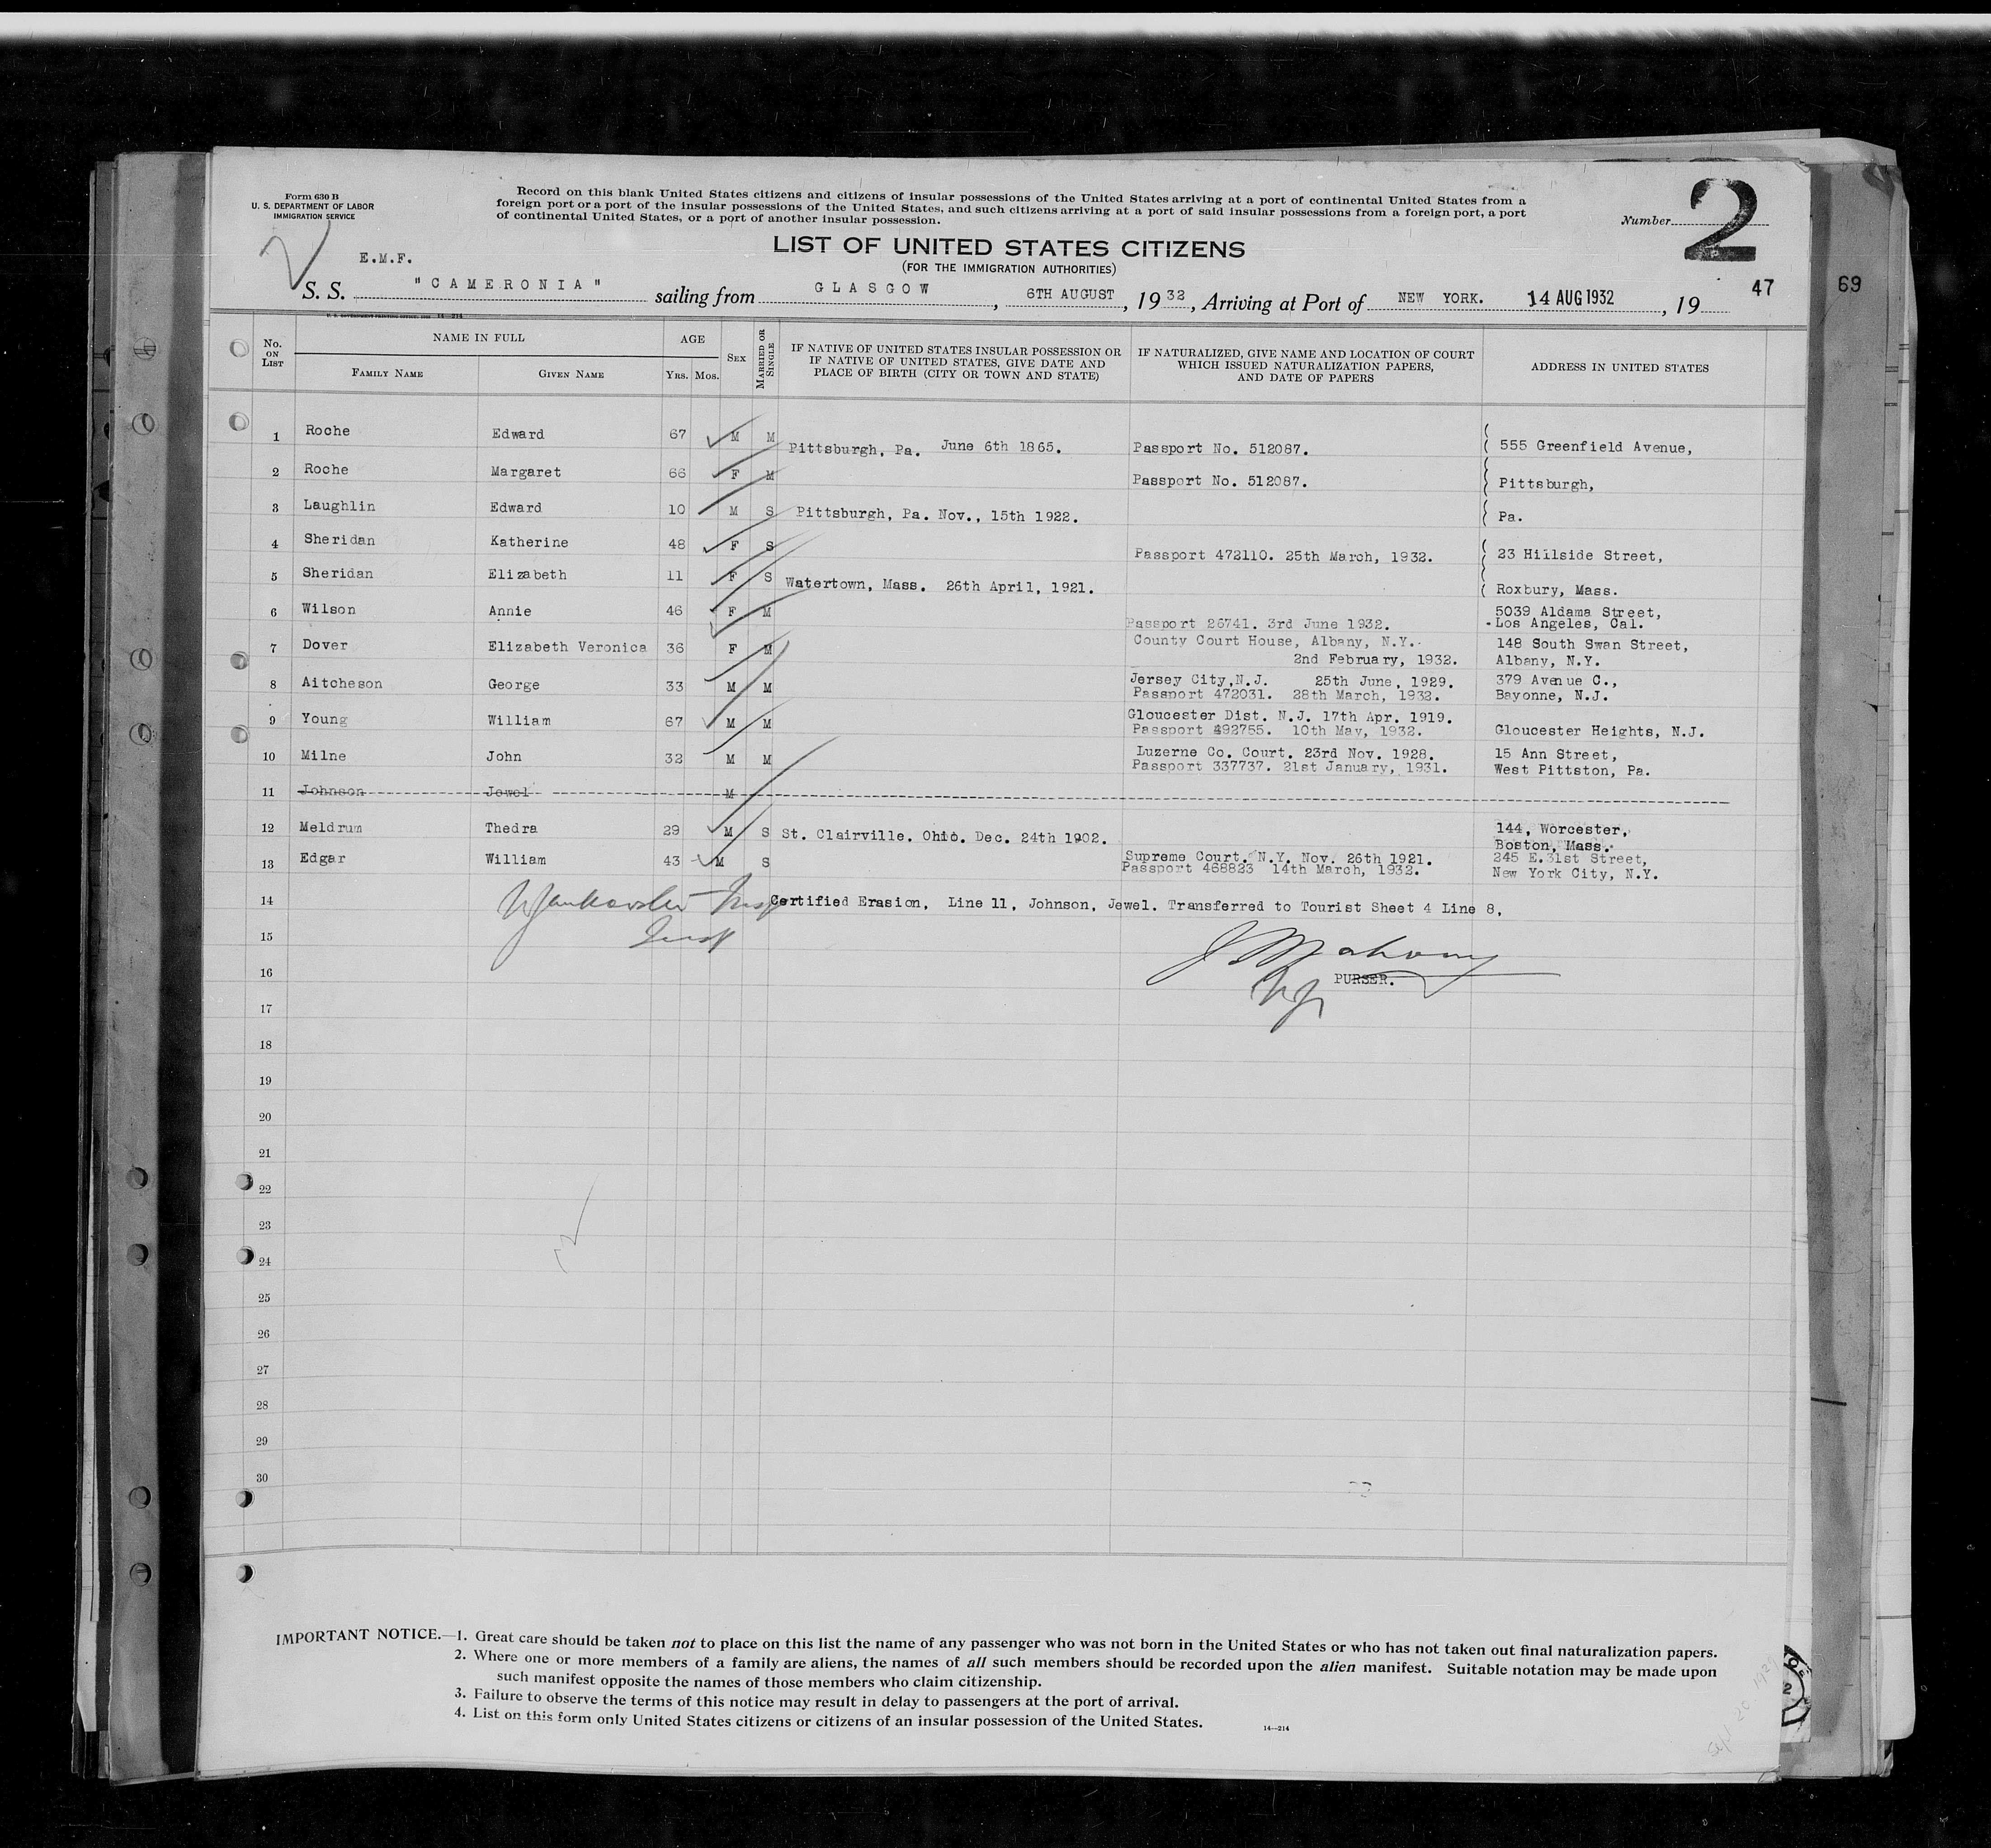 Form 630 B
U. S. DEPARTMENT OF LABOR
IMMIGRATION SERVICE
Record on this blank United States citizens and citizens of insular possessions of the United States arriving at a port of continental United States from a
foreign port or a port of the insular possessions of the United States, and such citizens arriving at a port of said insular possessions from a foreign port, a port
of continental United States, or a port of another insular possession.
Number 2
LIST OF UNITED STATES CITIZENS
(FOR THE IMMIGRATION AUTHORITIES)
E.M.F.
S. S. "CAMERONIA" sailing from GLASGOW, 6TH AUGUST, 1932, Arriving at Port of NEW YORK. 14 AUG 1932, 19 47
69
No. ON LIST
NAME IN FULL
FAMILY NAME
GIVEN NAME
AGE
YRS. MOS.
SEX
MARRIED OR SINGLE
IF NATIVE OF UNITED STATES INSULAR POSSESSION OR
IF NATIVE OF UNITED STATES, GIVE DATE AND
PLACE OF BIRTH (CITY OR TOWN AND STATE)
IF NATURALIZED, GIVE NAME AND LOCATION OF COURT
WHICH ISSUED NATURALIZATION PAPERS,
AND DATE OF PAPERS
ADDRESS IN UNITED STATES
1 Roche Edward 67 M M Pittsburgh, Pa. June 6th 1865. Passport No. 512087. 555 Greenfield Avenue,
2 Roche Margaret 66 F M Passport No. 512087. Pittsburgh,
3 Laughlin Edward 10 M S Pittsburgh, Pa. Nov., 15th 1922. Pa.
4 Sheridan Katherine 48 F S Passport 472110. 25th March, 1932. 23 Hillside Street,
5 Sheridan Elizabeth 11 F S Watertown, Mass. 26th April, 1921. Roxbury, Mass.
6 Wilson Annie 46 F M Passport 26741. 3rd June 1932. 5039 Aldama Street,
Los Angeles, Cal.
7 Dover Elizabeth Veronica 36 F M County Court House, Albany, N.Y. 148 South Swan Street,
2nd February, 1932. Albany, N.Y.
8 Aitcheson George 33 M M Jersey City, N.J. 25th June, 1929. 379 Avenue C.,
Passport 472031. 28th March, 1932. Bayonne, N.J.
9 Young William 67 M M Gloucester Dist. N.J. 17th Apr. 1919.
Passport 492755. 10th May, 1932. Gloucester Heights, N.J.
10 Milne John 32 M M Luzerne Co. Court. 23rd Nov. 1928. 15 Ann Street,
Passport 337737. 21st January, 1931. West Pittston, Pa.
11 Johnson Jewel M
12 Meldrum Thedra 29 M S St. Clairville. Ohio. Dec. 24th 1902. 144, Worcester,
Boston, Mass.
13 Edgar William 43 M S Supreme Court. N.Y. Nov. 26th 1921. 245 E. 31st Street,
Passport 468823 14th March, 1932. New York City, N.Y.
14 Certified Erasion, Line 11, Johnson, Jewel. Transferred to Tourist Sheet 4 Line 8,
15
16 PURSER.
17
18
19
20
21
22
23
24
25
26
27
28
29
30
IMPORTANT NOTICE.—1. Great care should be taken not to place on this list the name of any passenger who was not born in the United States or who has not taken out final naturalization papers.
2. Where one or more members of a family are aliens, the names of all such members should be recorded upon the alien manifest. Suitable notation may be made upon
such manifest opposite the names of those members who claim citizenship.
3. Failure to observe the terms of this notice may result in delay to passengers at the port of arrival.
4. List on this form only United States citizens or citizens of an insular possession of the United States.
14—214